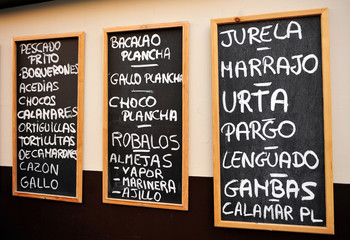 PESCADO
FRITO
-BOQUERONES
ACEDIAS
CHOCOS
CALAMARES
ORTIGUILLAS
TORTILLITAS
DE CAMARONES
CAZON
GALLO
BACALAO
PLANCHA
GALLO PLANCHA
CHOCO
PLANCHA
ROBALOS
ALMEJAS
-VAPOR
-MARINERA
-AJILLO
JURELA
MARRAJO
URTA
PARGO
LENGUADO
GAMBAS
CALAMAR PL